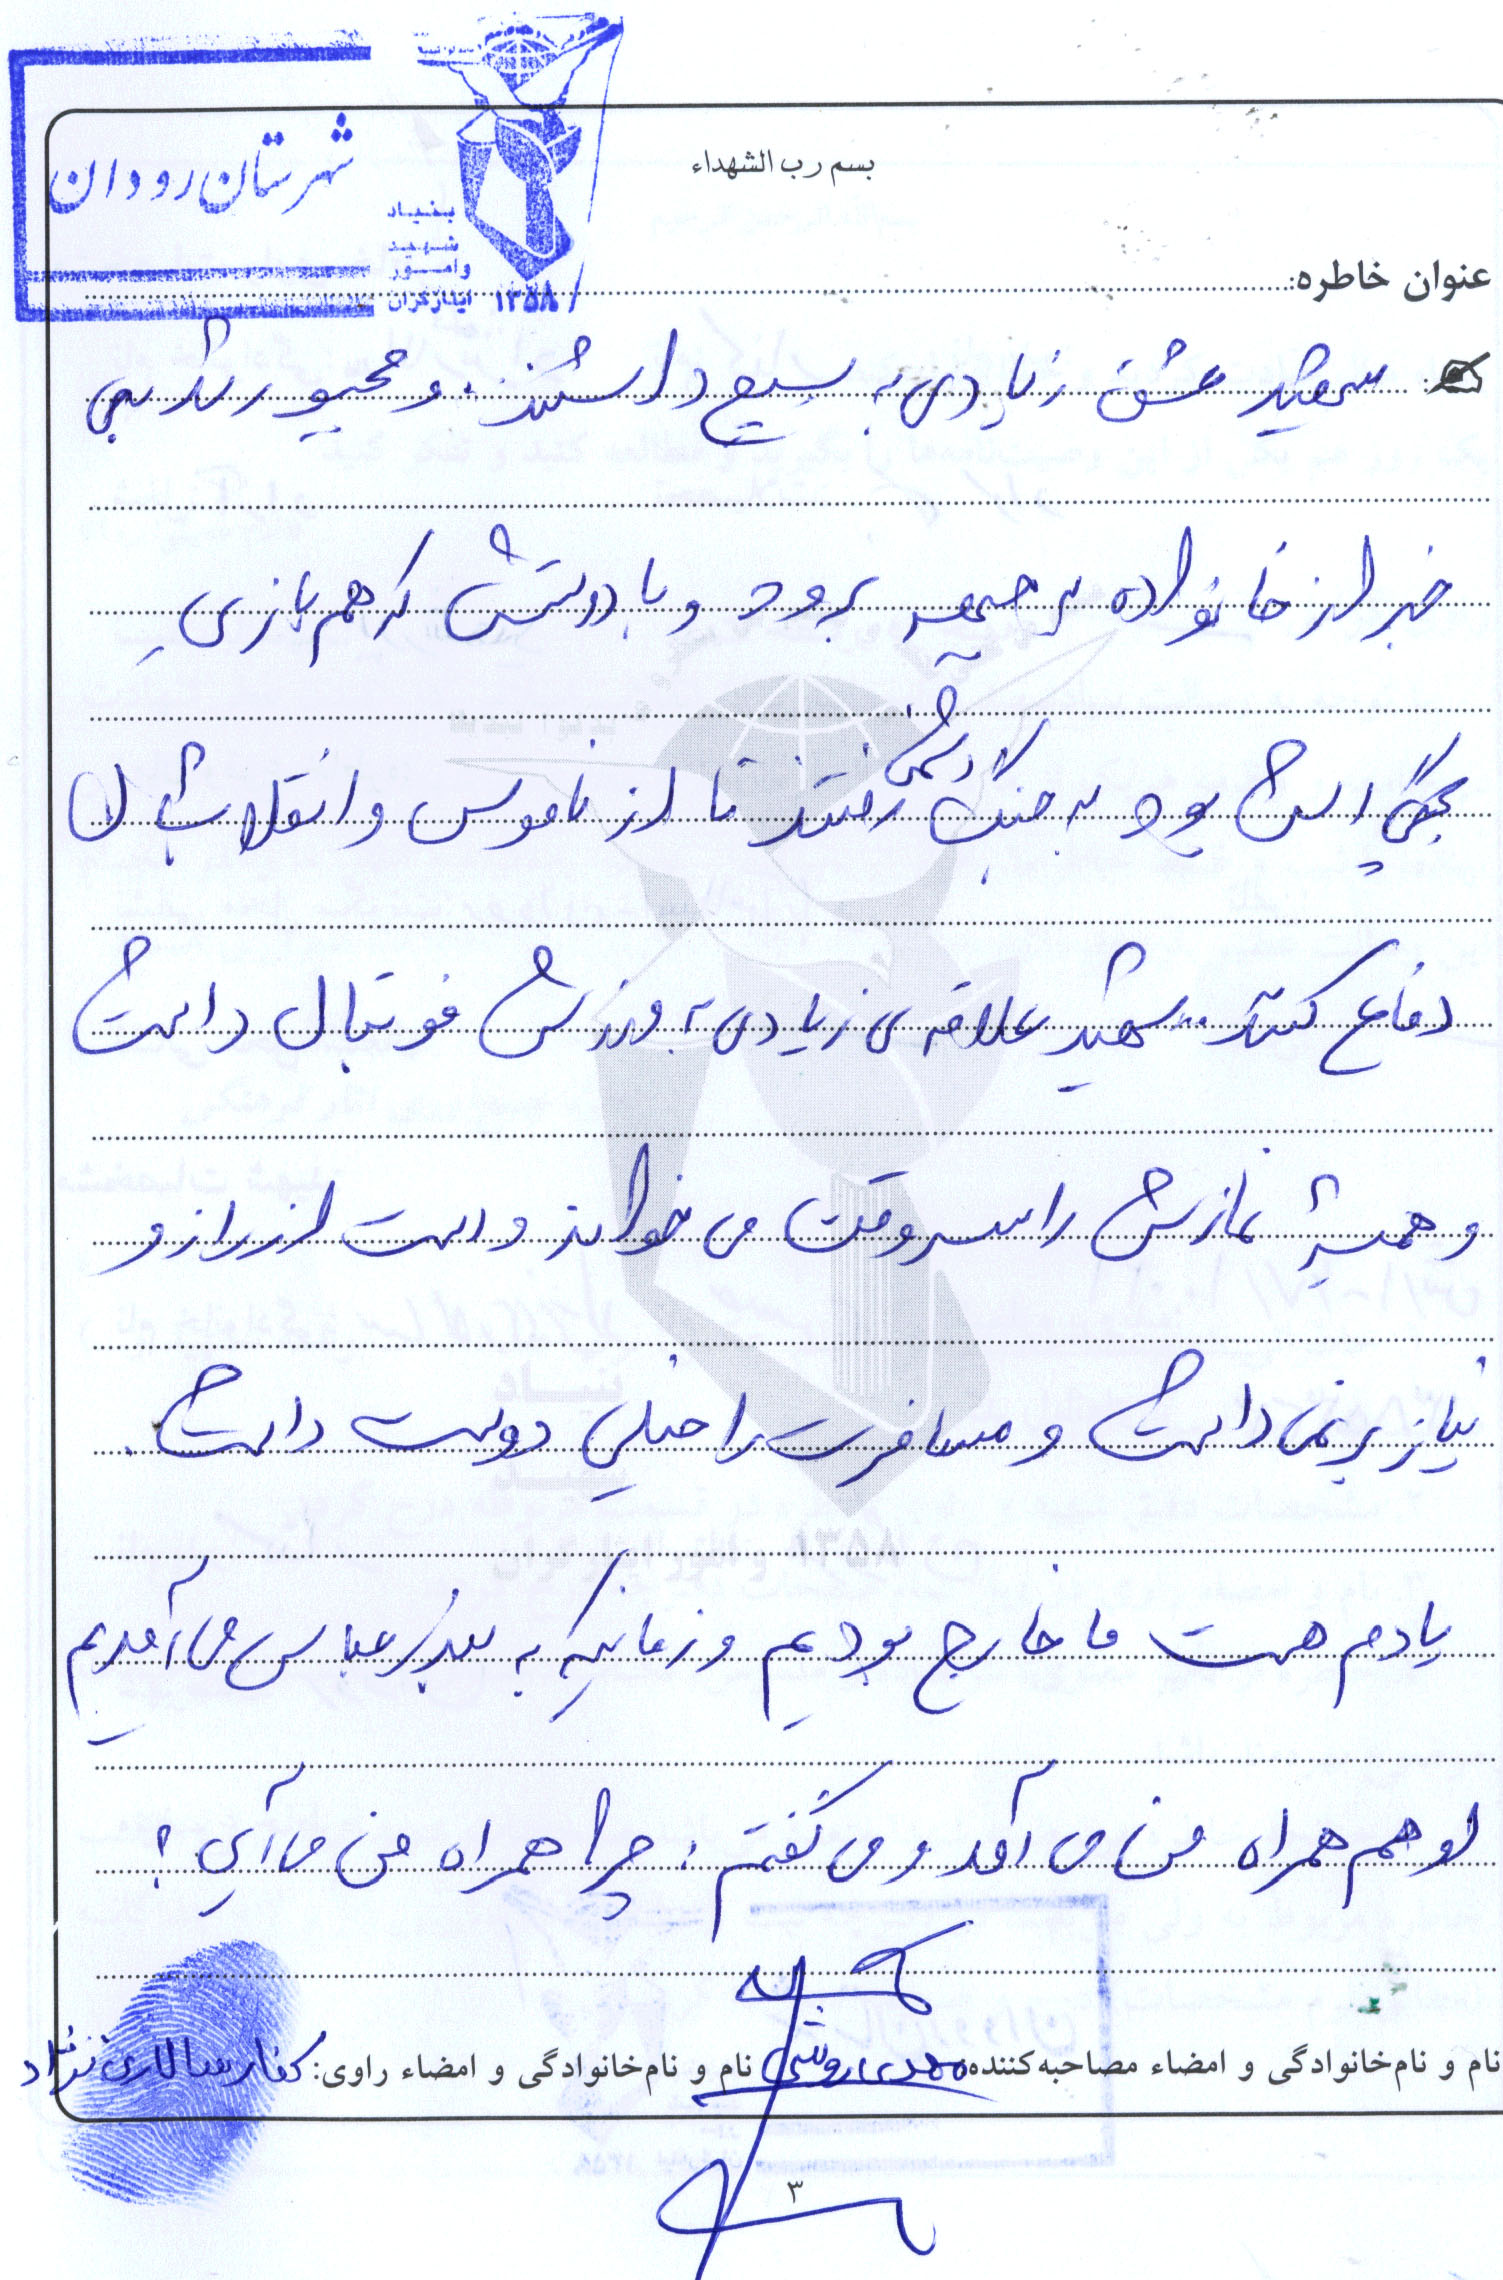 شهرستان رودان
بنیاد
شهید
وامور
ایثارگران
۱۳۵۸
بسم رب الشهداء
عنوان خاطره:
شهید عشق زیادی به بسیج داشتند. و مجبور شد بی
خبر از خانواده به جبهه برود و با دوستش که هم بازی
بچگی اش بود به جنگ با دشمن رفتند تا از ناموس و انقلابشان
دفاع کنند.. شهید علاقه ی زیادی به ورزش فوتبال داشت
و همیشه نمازش را سر وقت می خواند و دست از راز و
نیاز بر نمی داشت و مسافرت را خیلی دوست داشت.
یادم هست ما خارج بودیم و زمانیکه به بندرعباس می آمدیم
او هم همراه من می آمد و می گفتم: چرا همراه من می آیی؟
نام و نام‌خانوادگی و امضاء مصاحبه‌کننده: نام و نام‌خانوادگی و امضاء راوی: سالاری نژاد
۳